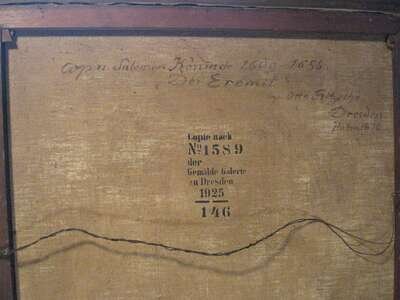 Copie n. Salomon Koninck 1609-1656
"Der Eremit"
Otto
Dresden
Copie nach
No. 1589
der
Gemälde Galerie
zu Dresden
1925
146